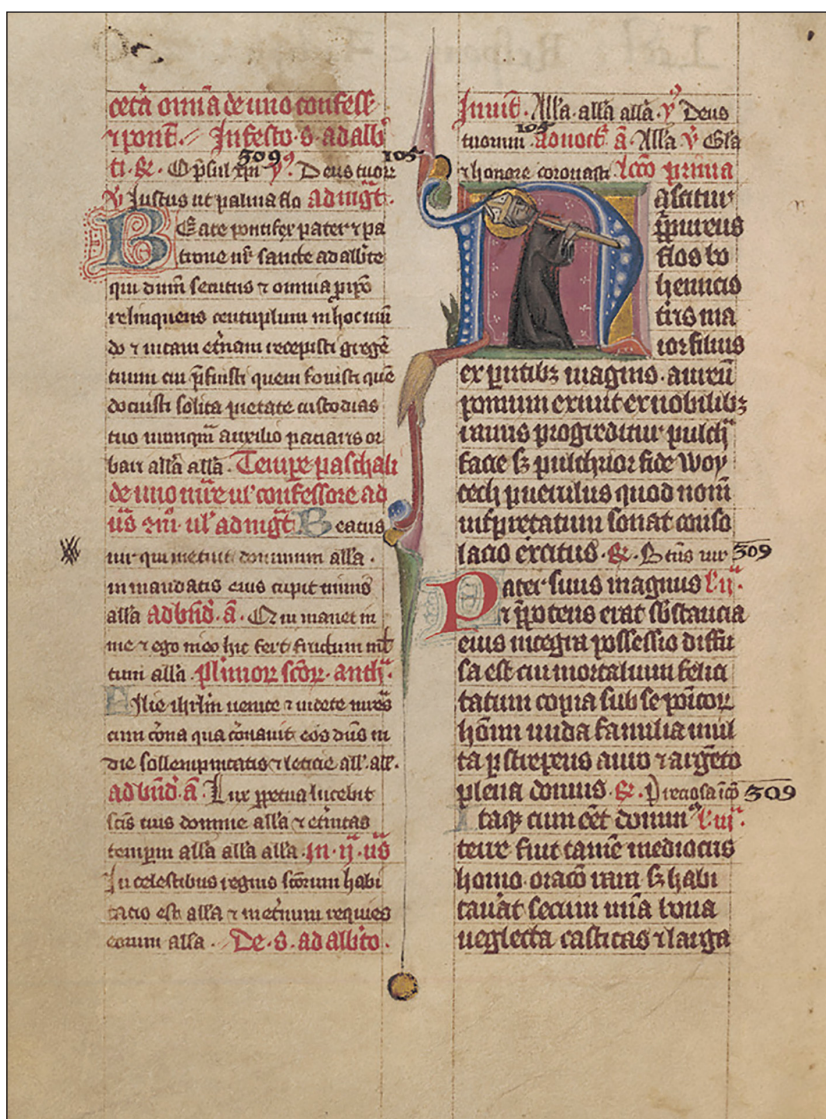 cetā omīa de uno confess̄
⁊ pont̄. In festo · s · adalb̄
ti · R̷ · O p̄sul xp̄i 509 ℣ꝰ. Deus tuoꝝ 105
℣ Justus ut palma flo ad mḡt.
Beate pontifex pater ⁊ pa
trone nr̄ sancte adalb̄te
qui dn̄m secutus ⁊ omnia p
relinquens centuplum in hoc mū
do ⁊ uitam et̄nam recepisti gregē
tuum cui p̄fuisti quem fouisti quē
docuisti solita pietate custodias
tuo nunqm̄ auxilio paciaris or
bari all̄a all̄a. Tempe paschali
de uno mr̄e ul' confessore ad
ul' ad mḡt Beatus
uir qui metuit dominum all̄a.
in mandatis eius cupit nimis
all̄a ad bn̄d. ā. Qui manet in
me ⁊ ego in eo hic fert fructum ml̄
tum all̄a. Plimoꝝ scōꝝ. anth̄.
Filie ihrl̄m uenite ⁊ uidete mr̄es
cum cōna qua cōnauit eos dn̄s in
die sollempnitatis ⁊ leticie all̄. all̄.
ad bn̄d. ā Lux ppetua lucebit
scīs tuis domine all̄a ⁊ et̄nitas
tempꝝm all̄a all̄a all̄a. in · ij · us̄
In celestibus regnis scōrum habi
tacio est all̄a ⁊ in et̄num requies
eorum all̄a. De · s · adalb̄to.
Inuit̄. All̄a. all̄a all̄a. ℣ꝰ Deus
tuorum 105. ad noct̄. ā. All̄a ℣ Gl̄a
⁊ honore coronasti Lc̄cō prima
Nascitur
p̄pureus
flos bo
hemicis
tirs ma
ior filius
ex p̄ntibꝫ magnus. aureū
pomum exiuit ex nobilibꝫ
ramis progreditur pulch̄
facie sꝫ pulchrior fide woy
tech puerulus quod nom̄
int̄pretatum sonat conso
lacio exc̄itus. R̷. Btūs uir 509
Pater suus magnus l' ij.
⁊ p̄potens erat s̄bstancia
eius integra possessio diffu
sa est cui mortalium felici
tatum copia sub se
hōnū nuda familia mul
ta pstrepens auro ⁊ arḡeto
plena domus. R̷. P̄reciosa 509
Itaqꝫ cum eēt domin⁹ l' iij.
terre fuit tamē mediocris
homo. orac̄o sꝫ habi
tauat̄ secum bona
neglecta castitas ⁊ larga